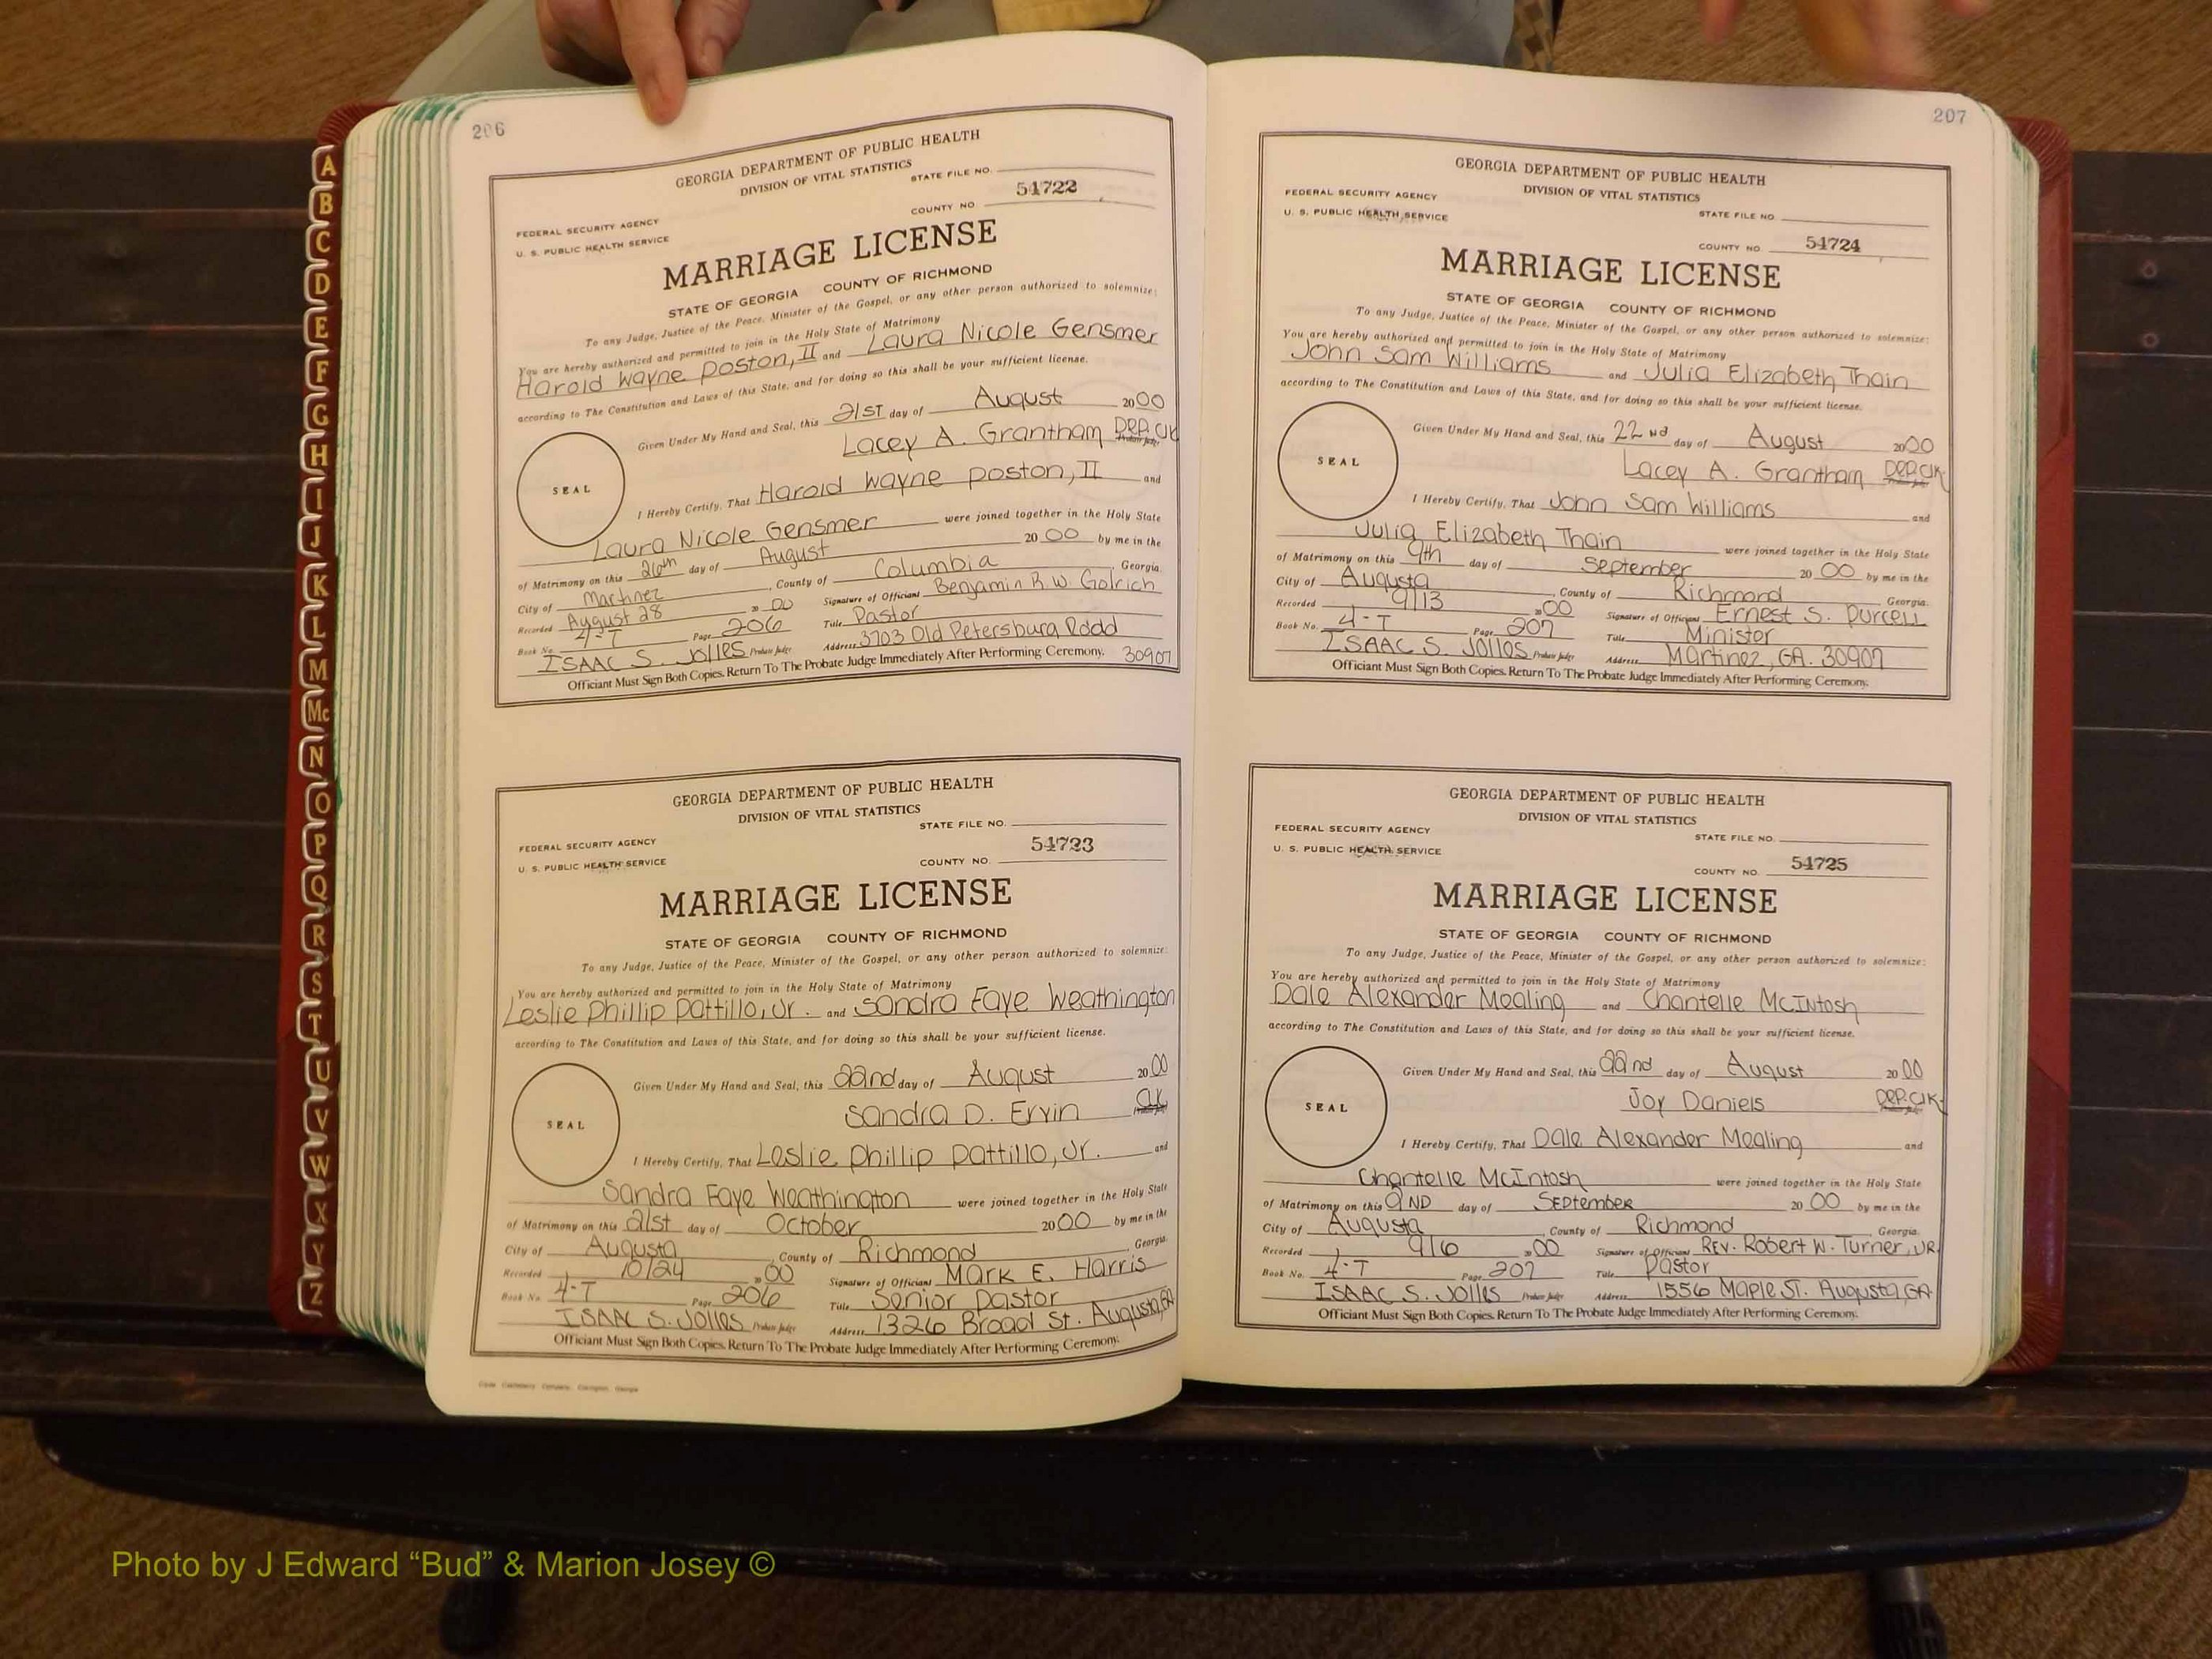 206
GEORGIA DEPARTMENT OF PUBLIC HEALTH
DIVISION OF VITAL STATISTICS
STATE FILE NO.
FEDERAL SECURITY AGENCY
U. S. PUBLIC HEALTH SERVICE
COUNTY NO. 54722
MARRIAGE LICENSE
STATE OF GEORGIA COUNTY OF RICHMOND
To any Judge, Justice of the Peace, Minister of the Gospel, or any other person authorized to solemnize:
You are hereby authorized and permitted to join in the Holy State of Matrimony
Harold Wayne Poston, II and Laura Nicole Gensmer
according to The Constitution and Laws of this State, and for doing so this shall be your sufficient license.
Given Under My Hand and Seal, this 21ST day of August 2000
Lacey A. Grantham DEP. Clk
SEAL
I Hereby Certify, That Harold Wayne Poston, II and
Laura Nicole Gensmer were joined together in the Holy State
of Matrimony on this 26th day of August 2000 by me in the
City of Martinez, County of Columbia, Georgia.
Recorded August 28 2000 Signature of Officiant Benjamin R. W. Golrich
Book No. 4-T Page 206 Title Pastor
ISAAC S. Jolles Probate Judge Address 3703 Old Petersburg Road
30907
Officiant Must Sign Both Copies. Return To The Probate Judge Immediately After Performing Ceremony.
GEORGIA DEPARTMENT OF PUBLIC HEALTH
DIVISION OF VITAL STATISTICS
STATE FILE NO.
FEDERAL SECURITY AGENCY
U. S. PUBLIC HEALTH SERVICE
COUNTY NO. 54723
MARRIAGE LICENSE
STATE OF GEORGIA COUNTY OF RICHMOND
To any Judge, Justice of the Peace, Minister of the Gospel, or any other person authorized to solemnize:
You are hereby authorized and permitted to join in the Holy State of Matrimony
Leslie Phillip Pattillo, Jr. and Sandra Faye Weathington
according to The Constitution and Laws of this State, and for doing so this shall be your sufficient license.
Given Under My Hand and Seal, this 22nd day of August 2000
Sandra D. Ervin Clk
SEAL
I Hereby Certify, That Leslie Phillip Pattillo, Jr. and
Sandra Faye Weathington were joined together in the Holy State
of Matrimony on this 21st day of October 2000 by me in the
City of Augusta, County of Richmond, Georgia.
Recorded 10/24 2000 Signature of Officiant Mark E. Harris
Book No. 4-T Page 206 Title Senior Pastor
ISAAC S. Jolles Probate Judge Address 1326 Broad St. Augusta, GA
Officiant Must Sign Both Copies. Return To The Probate Judge Immediately After Performing Ceremony.
207
GEORGIA DEPARTMENT OF PUBLIC HEALTH
DIVISION OF VITAL STATISTICS
FEDERAL SECURITY AGENCY
U. S. PUBLIC HEALTH SERVICE
STATE FILE NO.
COUNTY NO. 54724
MARRIAGE LICENSE
STATE OF GEORGIA COUNTY OF RICHMOND
To any Judge, Justice of the Peace, Minister of the Gospel, or any other person authorized to solemnize:
You are hereby authorized and permitted to join in the Holy State of Matrimony
John Sam Williams and Julia Elizabeth Thain
according to The Constitution and Laws of this State, and for doing so this shall be your sufficient license.
Given Under My Hand and Seal, this 22nd day of August 2000
Lacey A. Grantham DEP. Clk.
SEAL
I Hereby Certify, That John Sam Williams and
Julia Elizabeth Thain were joined together in the Holy State
of Matrimony on this 9th day of September 2000 by me in the
City of Augusta, County of Richmond Georgia.
Recorded 9/13 2000 Signature of Officiant Ernest S. Purcell
Book No. 4-T Page 207 Title Minister
ISAAC S. Jolles Probate Judge Address Martinez, GA. 30907
Officiant Must Sign Both Copies. Return To The Probate Judge Immediately After Performing Ceremony.
GEORGIA DEPARTMENT OF PUBLIC HEALTH
DIVISION OF VITAL STATISTICS
FEDERAL SECURITY AGENCY
U. S. PUBLIC HEALTH SERVICE
STATE FILE NO.
COUNTY NO. 54725
MARRIAGE LICENSE
STATE OF GEORGIA COUNTY OF RICHMOND
To any Judge, Justice of the Peace, Minister of the Gospel, or any other person authorized to solemnize:
You are hereby authorized and permitted to join in the Holy State of Matrimony
Dale Alexander Mealing and Chantelle McIntosh
according to The Constitution and Laws of this State, and for doing so this shall be your sufficient license.
Given Under My Hand and Seal, this 22nd day of August 2000
Joy Daniels DEP. Clk.
SEAL
I Hereby Certify, That Dale Alexander Mealing and
Chantelle McIntosh were joined together in the Holy State
of Matrimony on this 2ND day of September 2000 by me in the
City of Augusta, County of Richmond Georgia.
Recorded 9/6 2000 Signature of Officiant REV. Robert W. Turner, JR.
Book No. 4-T Page 207 Title Pastor
ISAAC S. Jolles Probate Judge Address 1556 Maple ST. Augusta, GA
Officiant Must Sign Both Copies. Return To The Probate Judge Immediately After Performing Ceremony.
A
B
C
D
E
F
G
H
I
J
K
L
M
Mc
N
O
P
Q
R
S
T
U
V
W
X
Y
Z
Photo by J Edward “Bud” & Marion Josey ©